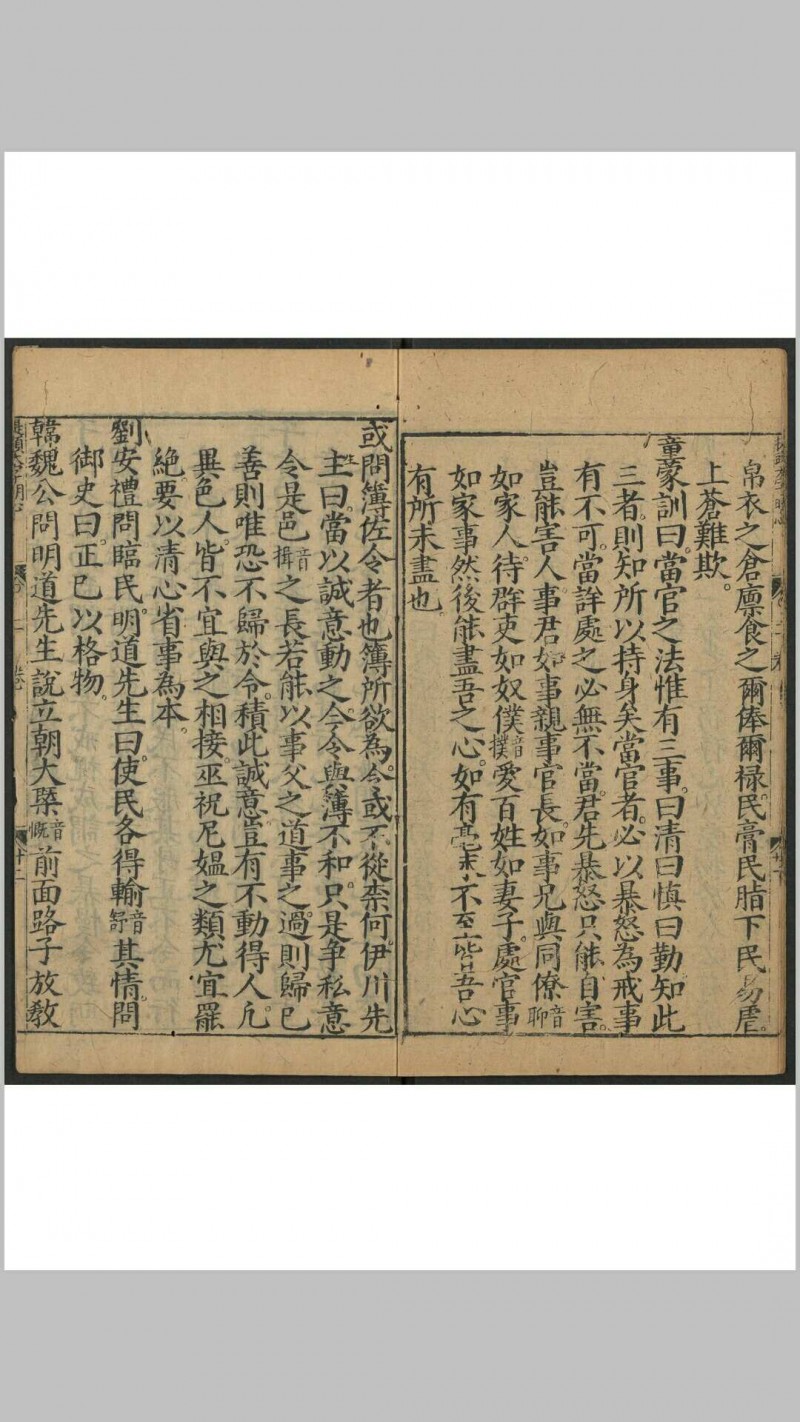 帛衣之倉廩食之爾俸爾祿民膏民脂下民易虐。
上蒼難欺。
童蒙訓曰。當官之法惟有三事。曰清曰慎曰勤知此
三者。則知所以持身矣當官者。必以暴怒為戒事
有不可。當詳處之必無不當。君先暴怒只能自害。
豈能害人。事君如事親事官長。如事兄與同僚音聊
如家人。待群吏如奴僕音撲愛百姓如妻子。處官事
如家事然後能盡吾之心。如有毫末不至皆吾心
有所未盡也
或問簿佐令者也簿所欲為。令或不從柰何。伊川先
生曰。當以誠意動之。今令與簿不和。只是争私意
令是邑音揖之長若能以事父之道事之。過則歸已
善則唯恐不歸於令。積此誠意豈有不動得人。凡
異色人。皆不宜與之相接。巫祝尼媼之類尤宜罷
絶要以清心省事為本。
劉安禮問臨民。明道先生曰。使民各得輸音舒其情。問
御史曰。正已以格物。
韓魏公問明道先生說立朝大槩音慨前面路子放教